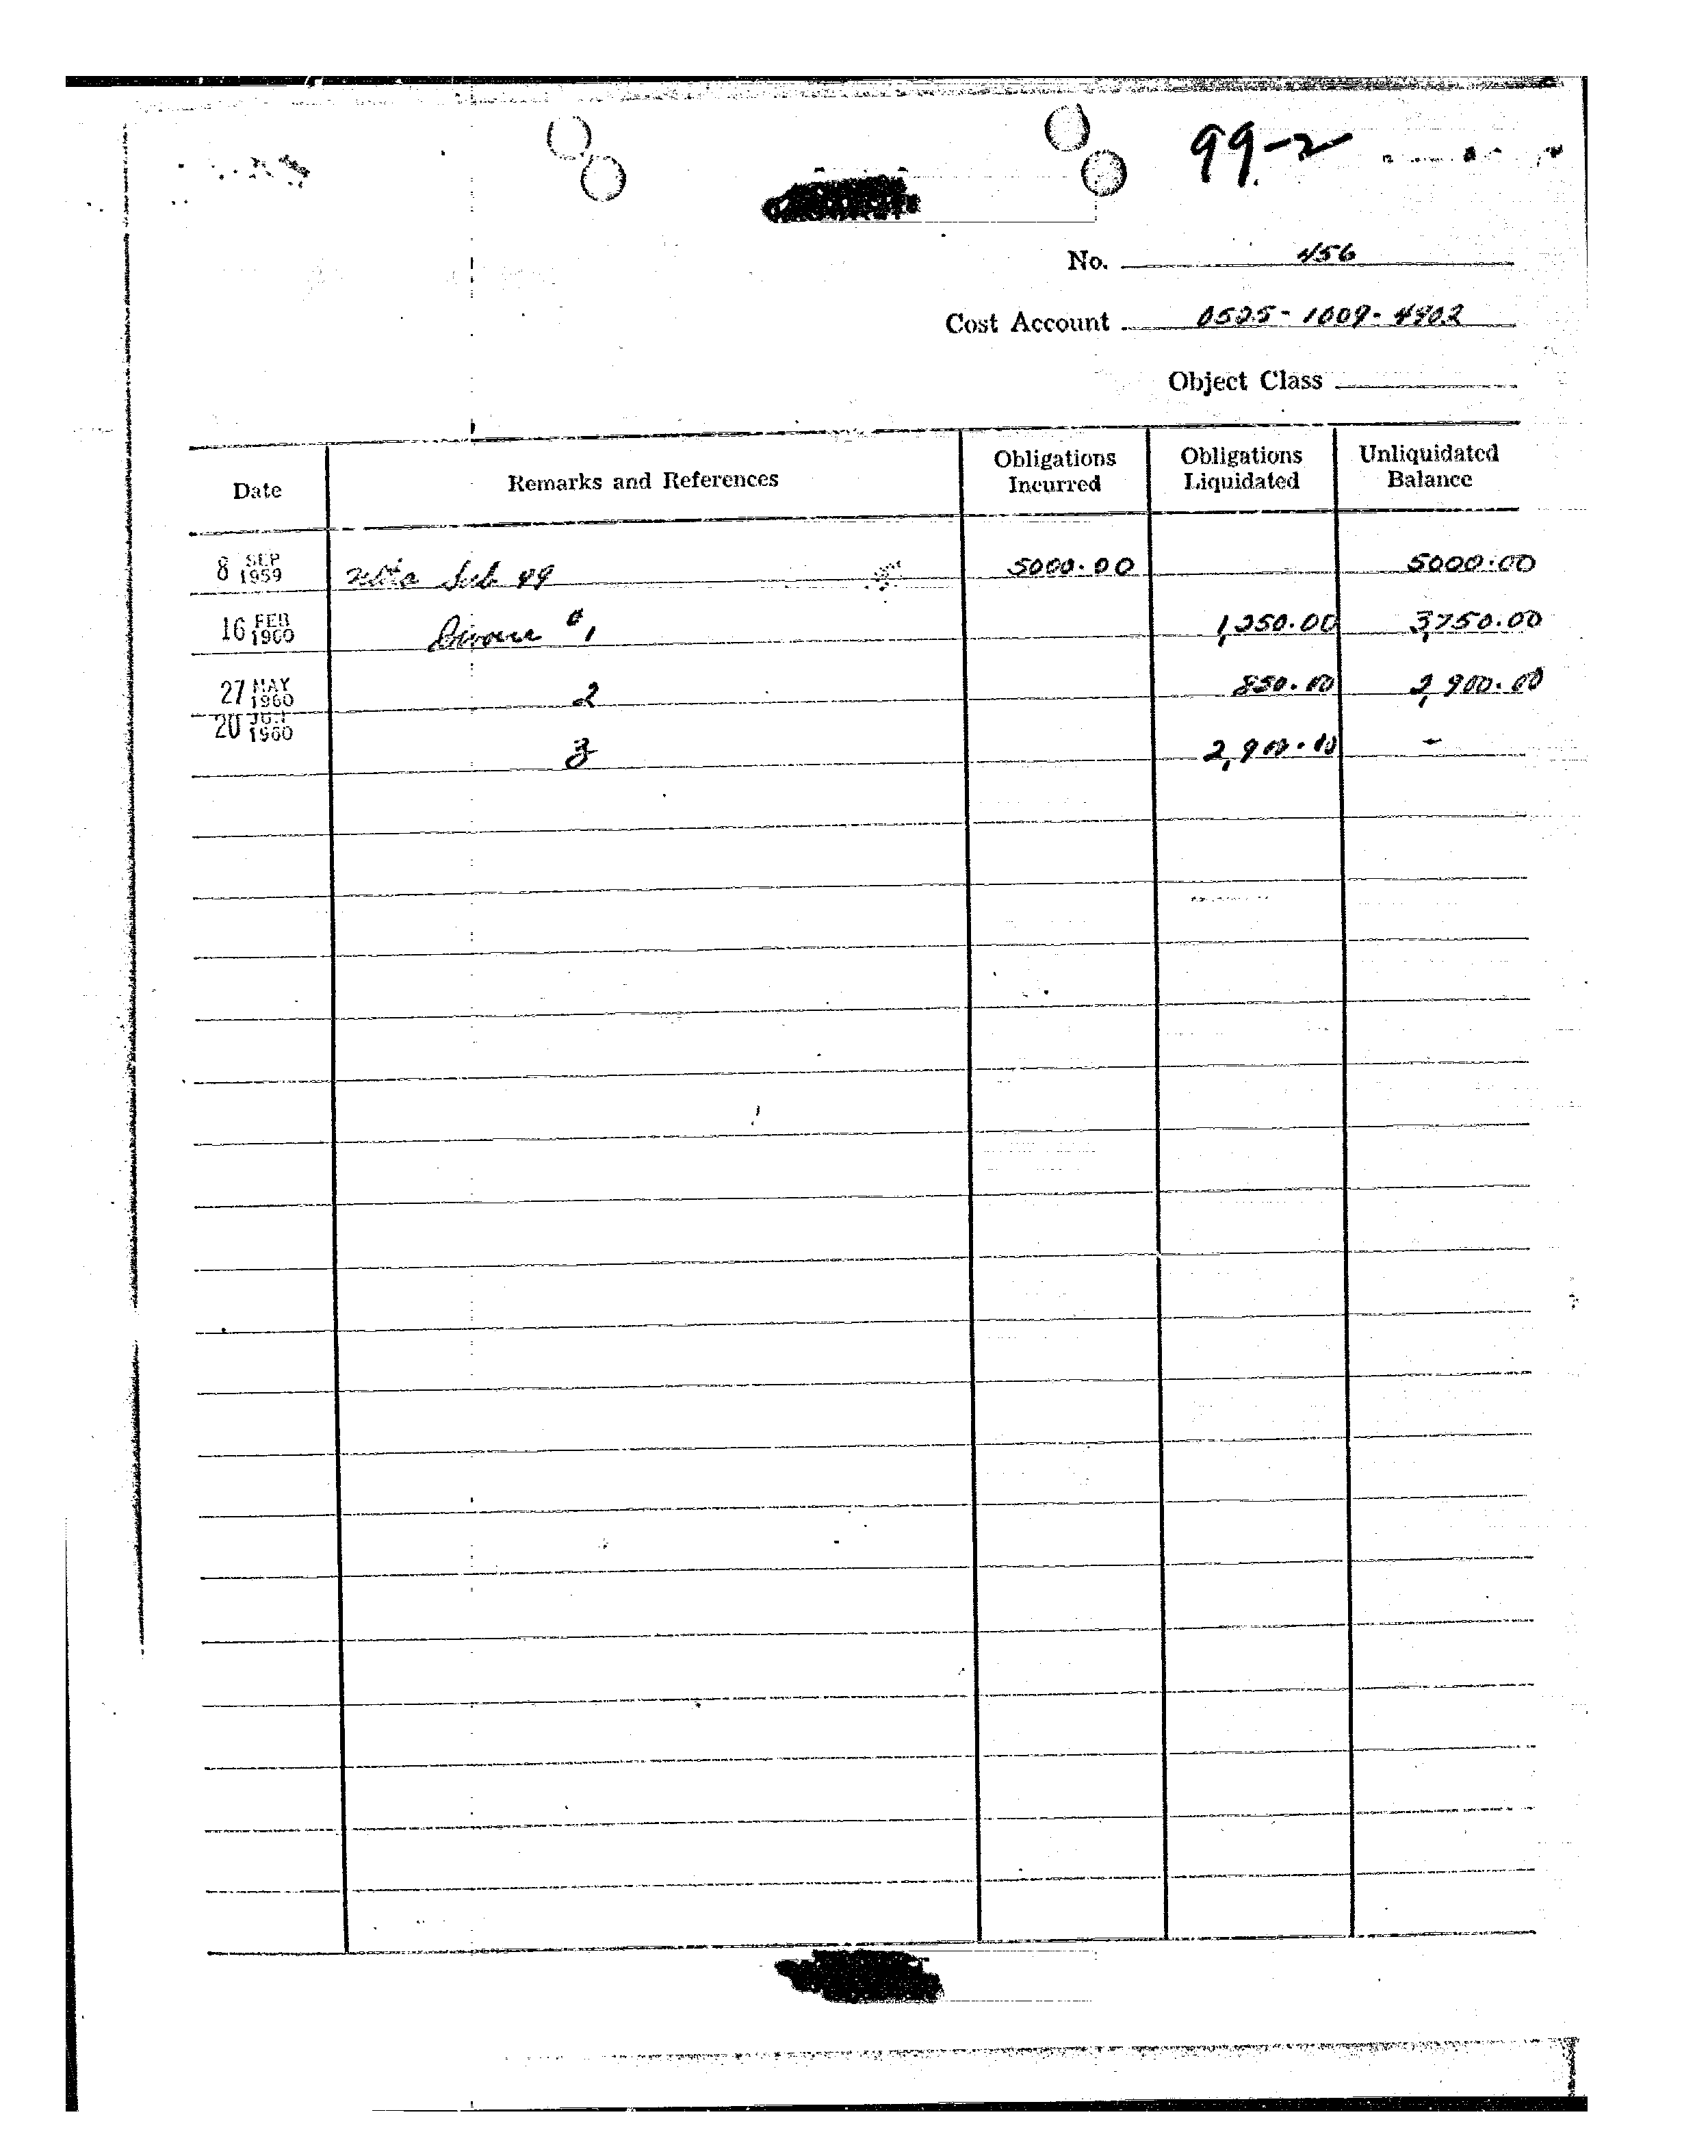 99-2
No. 456
Cost Account 0525-1009-4902
Object Class
Date Remarks and References Obligations Incurred Obligations Liquidated Unliquidated Balance
8 SEP 1959 Sub 49 5000.00 5000.00
16 FEB 1960 Invoice #1 1,250.00 3,750.00
27 MAY 1960 2 850.00 2,900.00
20 1960 3 2,900.00 -